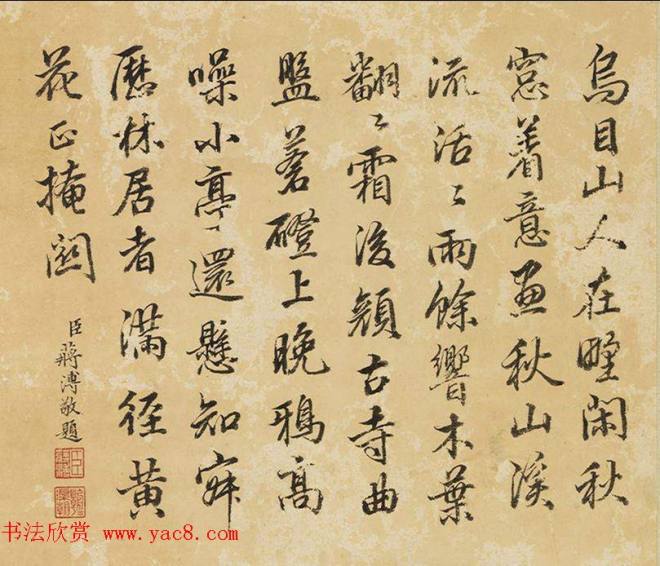 烏目山人在野閒秋
窓着意畫秋山溪
流活〻雨餘響木葉
翻〻霜後顏古寺曲
盤蒼磴上晚鴉高
噪小亭還懸知寂
歷林居者滿徑黃
花正掩關
臣蔣溥敬題
书法欣赏 www.yac8.com